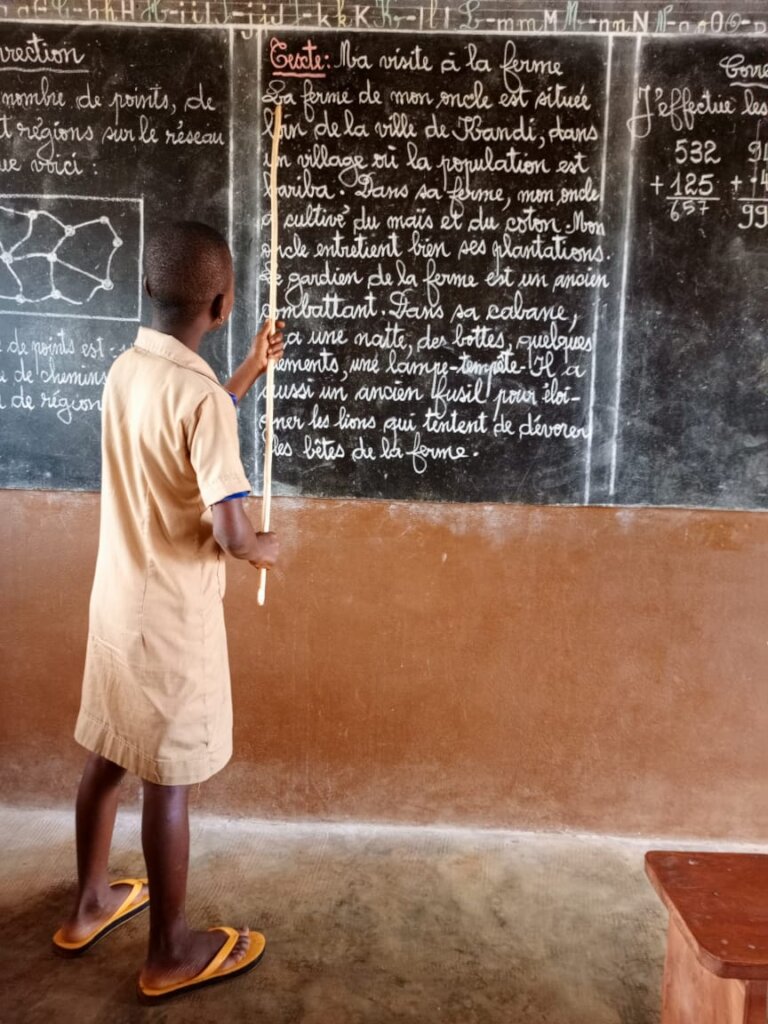 hH-iiI-jjJ-kkK-llL-mmM-nnN-ooO
rrection
nombre de points, de
t régions sur le réseau
ue voici :
de points est
de chemins
de région
Texte: Ma visite à la ferme
La ferme de mon oncle est située
loin de la ville de Kandi, dans
un village où la population est
bariba. Dans sa ferme, mon oncle
a cultivé du maïs et du coton. Mon
oncle entretient bien ses plantations.
Le gardien de la ferme est un ancien
combattant. Dans sa cabane,
a une natte, des bottes, quelques
ements, une lampe-tempête. Il a
aussi un ancien fusil pour éloi-
gner les lions qui tentent de dévorer
les bêtes de la ferme.
Corre
J'effectue les
532
+ 125
657
+
99